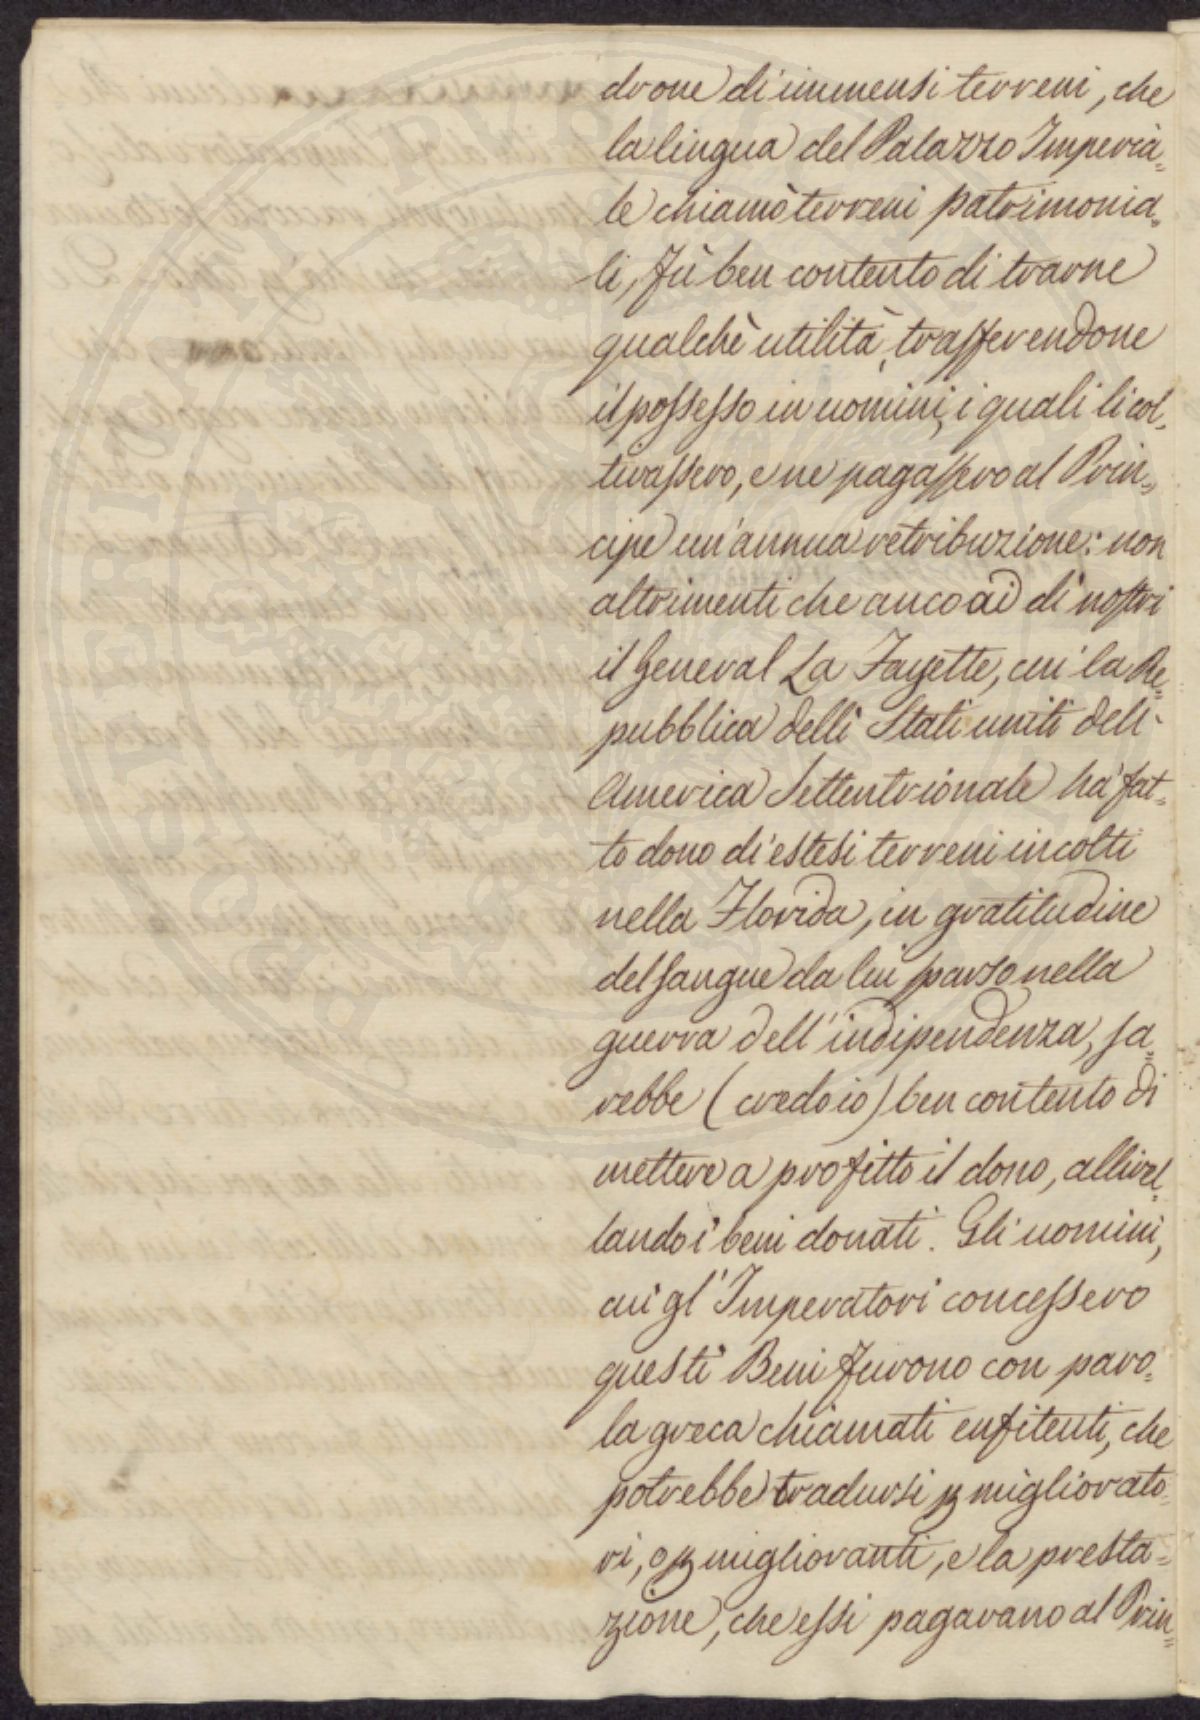 drone di immensi terreni, che
la lingua del Palazzo Imperia=
le chiamò terreni patrimonia=
li, fù ben contento di trarne
qualchè utilità, trasferendone
il possesso in uomini, i quali li col=
tivassero, e ne pagassero al Prin=
cipe un'annua retribuzione: non
altrimenti che anco ai dì nostri
il General La Fayette, cui la Re=
pubblica delli Stati uniti dell'
America Settentrionale hà fat=
to dono di estesi terreni incolti
nella Florida, in gratitudine
del sangue da lui sparso nella
guerra dell'indipendenza, sa=
rebbe (credo io) ben contento di
mettere a profitto il dono, allivel=
lando i beni donati. Gli uomini,
cui gl'Imperatori concessero
questi Beni furono con paro=
la greca chiamati enfiteuti, che
potrebbe tradursi p migliorato=
ri, o p miglioranti, e la presta=
zione, che essi pagavano al Prin=